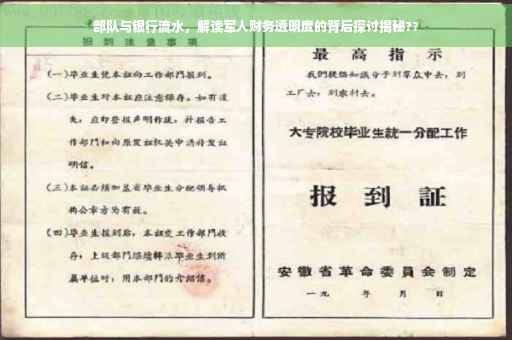 部队与银行流水，解读军人财务透明度的背后探讨揭秘??
报到注意事项
(一)毕业生凭本证向工作部门报到。
(二)毕业生对本证应注意保存。如有遗
失，应即登报声明作废，并报告工
作部门和向原发证机关申请补发证
明信。
(三)本证必须加盖省毕业生分配领导机
构公章方为有效。
(四)毕业生报到后，本证交工作部门收
存；上级部门
毕业生到所
属单位时，用本部门的介绍信。
最高指示
我们提倡知识分子到群众中去，到
工厂去，到农村去。
大专院校毕业生統一分配工作
报到証
安徽省革命委員会制定
一九 年 月 日